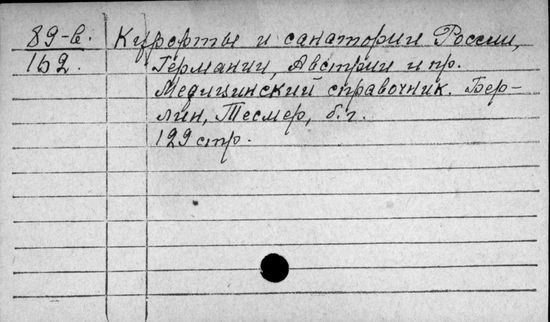 89-в. Курорты и санатории России,
162. Германии, Австрии и пр.
Медицинский справочник. Бер-
лин, Тесмер, б.г.
129 стр.